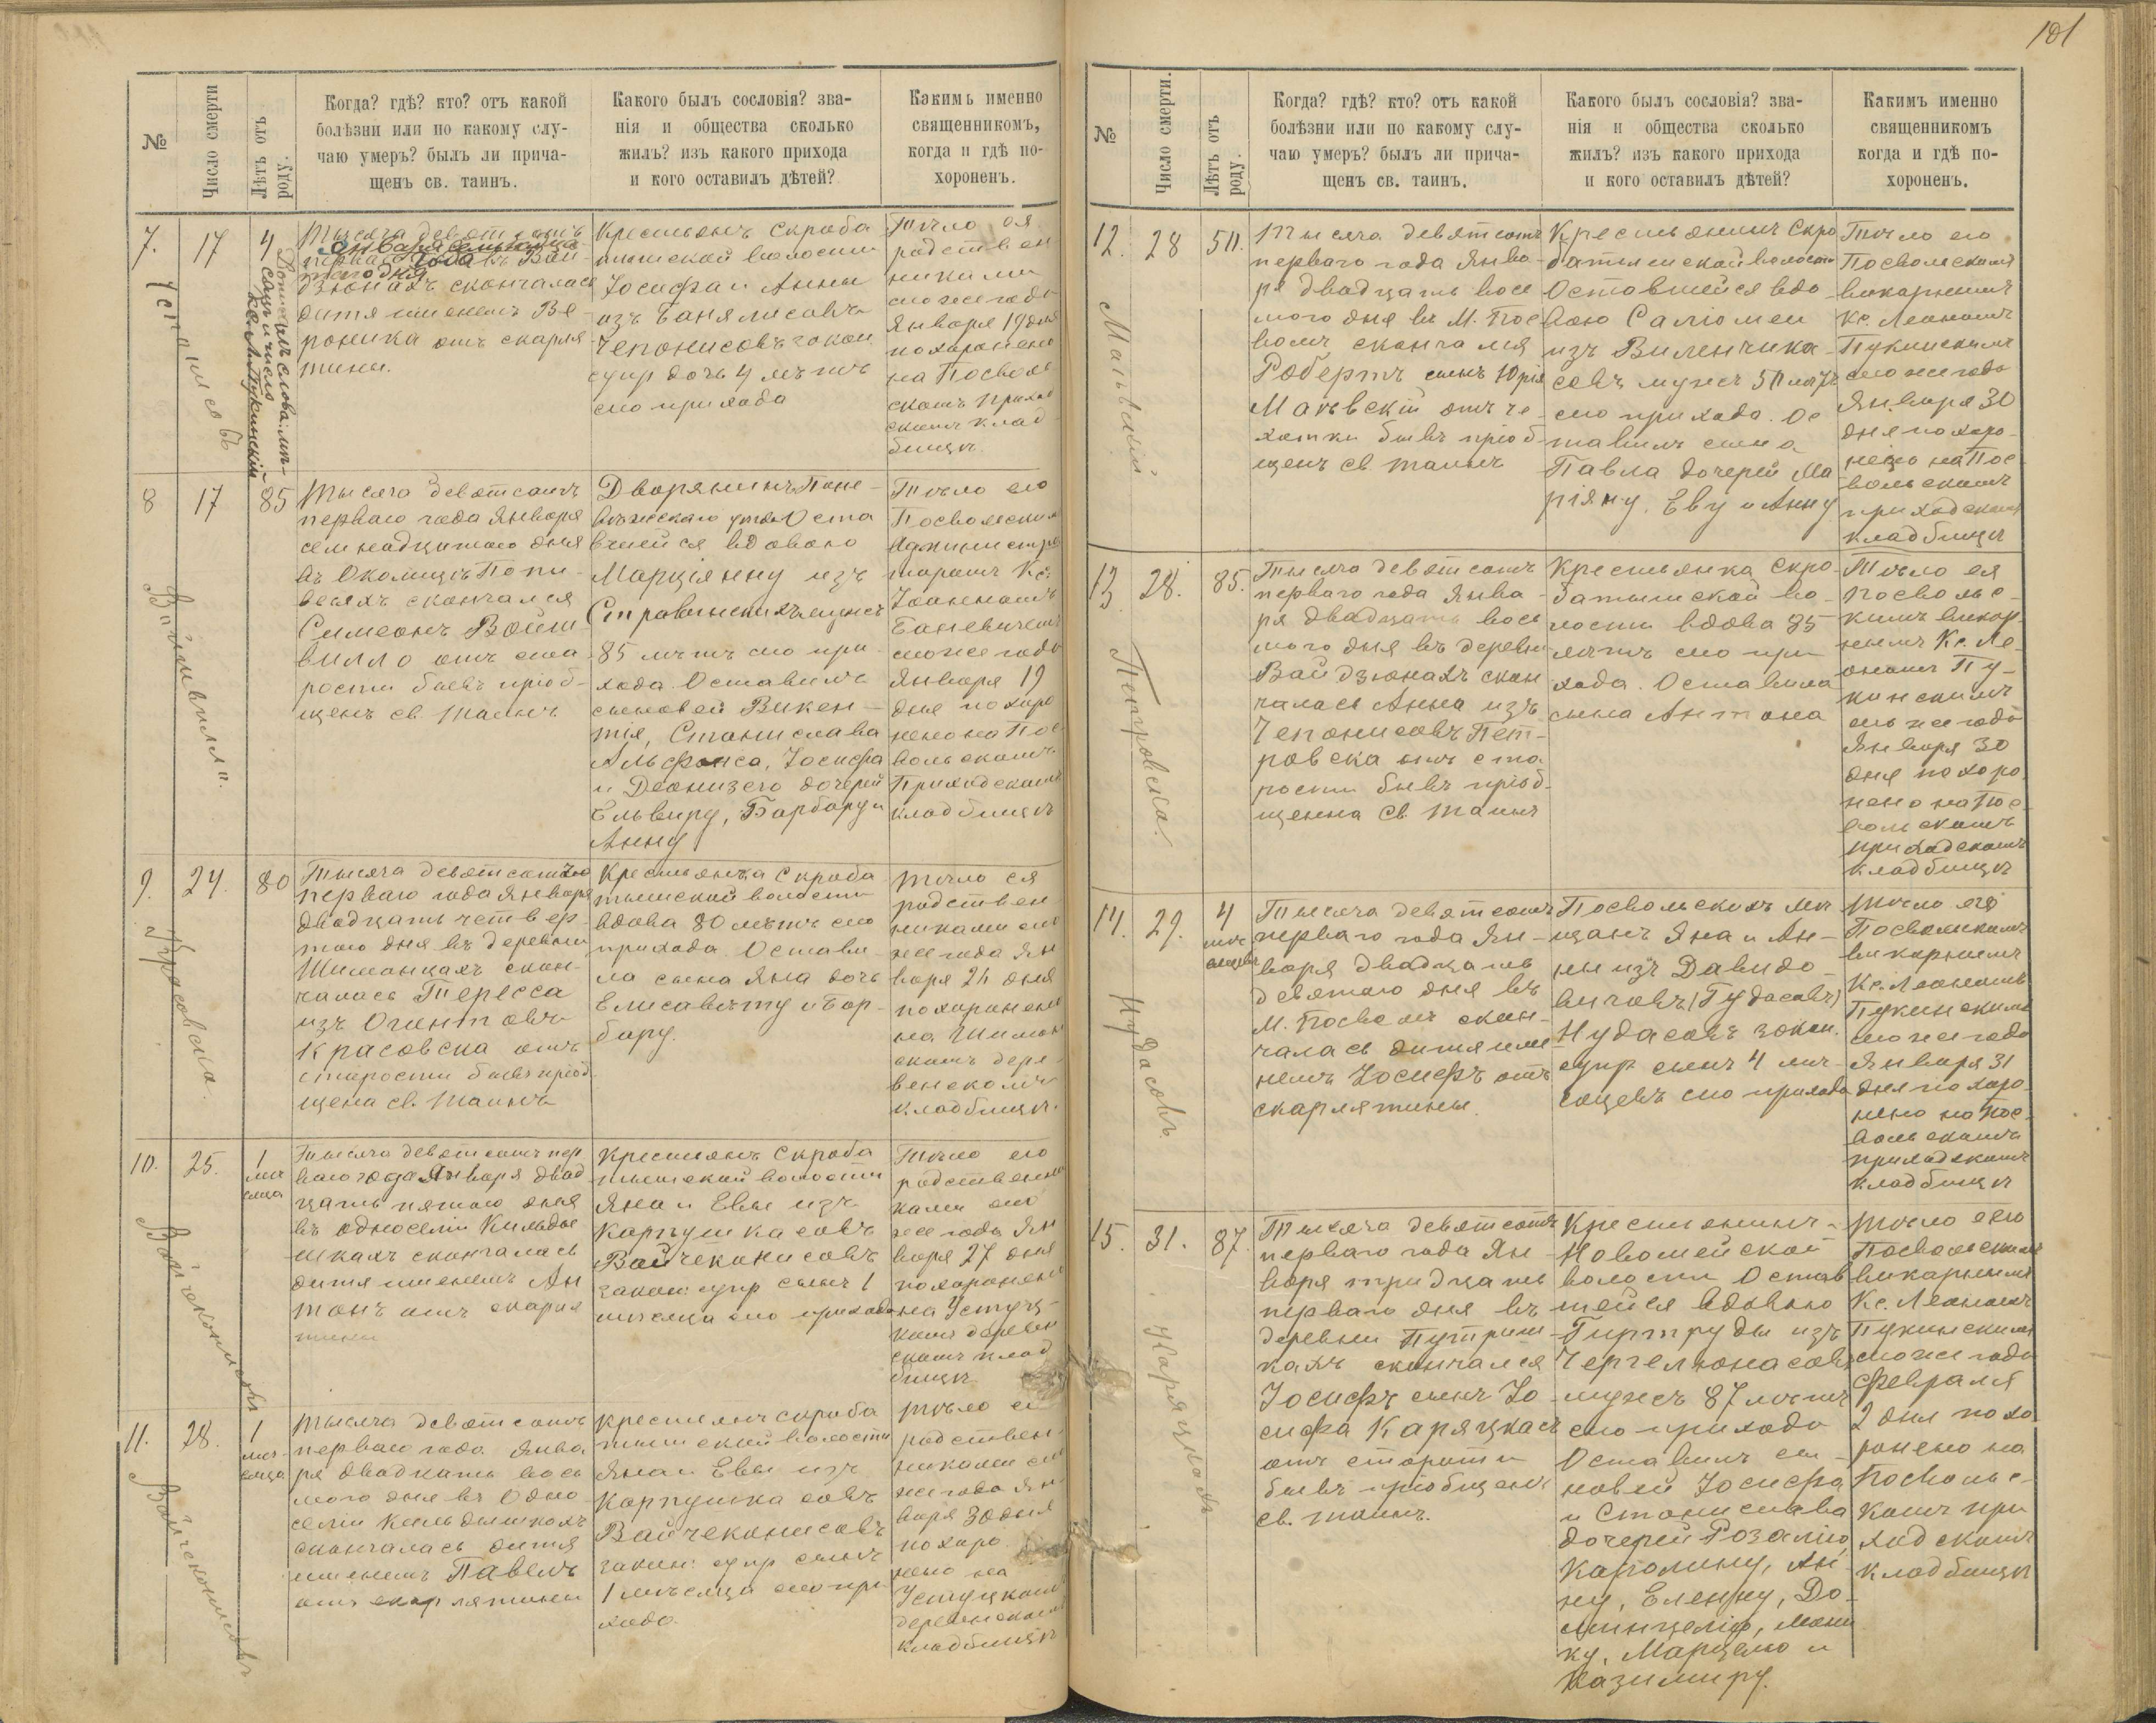 101
№
Число смерти
Лѣтъ отъ роду.
Когда? гдѣ? кто? отъ какой
болѣзни или по какому слу-
чаю умеръ? былъ ли прича-
щенъ св. таинъ.
Какого былъ сословія? зва-
нія и общества сколько
жилъ? изъ какого прихода
и кого оставилъ дѣтей?
Какимъ именно
священникомъ,
когда и гдѣ по-
хороненъ.
7.
17
4
Тысяча девятсотъ
января семнадца
перваго года въ Вай-
таго дня
дзюнахъ скончалась
дитя именемъ Ве
роника отъ скарля
тины.
Крестьянъ Скроба
тишской волости
Іосифа и Анны
изъ Банялисовъ
Чепонисовъ закон
супр дочь 4 лѣтъ
сего прихода
Тѣло ея
родствен
никами
сего же года
Января 19 дня
похоронено
на Посволь
скомъ приход
скомъ клад
бищѣ.
8
17
85
Войшвилло.
Тысяча девятсотъ
перваго года Января
семнадцатаго дня
въ Околицѣ Попи-
веяхъ скончался
Симеонъ Войш-
вилло отъ ста
рости бывъ пріоб-
щенъ св. Таинъ
Дворянинъ Поне-
вѣжскаго уѣзда Оста
вшейся вдовою
Марціянну изъ
Стравинскихъ мужъ
85 лѣтъ сего при
хода. Оставилъ
сыновей Викен-
тія, Станислава
Альфонса, Іосифа
и Деонизего дочерей
Ельвиру, Барбару и
Анну
Тѣло его
Посвольским
Администра
торомъ Кс.
Іоанномъ
Баневичемъ
сего же года
Января 19
дня похоро
нено на Пос
вольскомъ
Приходскомъ
кладбищѣ
9.
24.
80
Красовска.
Тысяча девятсотъ
перваго года Января
двадцать четвер-
таго дня въ деревни
Шиманцахъ скон-
чалась Тересса
изъ Огинтовъ
Красовска отъ
старости бывъ пріоб
щена св. Таинъ
Крестьянка Скроба
тишской волости
вдова 80 лѣтъ сего
прихода. Остави-
ла сына Яна дочь
Елисавѣту и Бар-
бару.
Тѣло ея
родствен
никами сего
же года Ян
варя 26 дня
похоронено
на Шиман
скомъ дере-
венскомъ
кладбищѣ.
10.
25.
1
мѣ
сяца
Вайчеконисъ
Тысяча девятсотъ пер
ваго года Января двад
цать пятаго дня
въ односеліи Кильды
шкахъ скончалась
дитя именемъ Ан
тонъ отъ скарля
тины
Крестьянъ Скроба
тишской волости
Яна и Евы изъ
Карпушкасовъ
Вайчеконисовъ
закон: супр сынъ 1
мѣсяца сего прихода
Тѣло его
родственни
ками сего
же года Ян
варя 27 дня
похоронено
на Устуц-
комъ деревен
скомъ клад
бищѣ
11.
28.
1
мѣ-
сяца
Вайчеконисовъ
Тысяча девятсотъ
перваго года Янва
ря двадцать вось
мого дня въ Одно
селіи Кильдышкахъ
скончалась дитя
именемъ Павелъ
отъ скарлятины
Крестьянъ Скроба
тишской волости
Яна и Евы изъ
Карпушкасовъ
Вайчеконисовъ
закон: супр сынъ
1 мѣсяца сего при
хода.
Тѣло его
родствен-
никами сего
же года Ян
варя 30 дня
похоро
нено на
Устуцкомъ
деревенскомъ
кладбищѣ
№
Число смерти.
Лѣтъ отъ роду.
Когда? гдѣ? кто? отъ какой
болѣзни или по какому слу-
чаю умеръ? былъ ли прича-
щенъ св. таинъ.
Какого былъ сословія? зва-
нія и общества сколько
жилъ? изъ какого прихода
и кого оставилъ дѣтей?
Какимъ именно
священникомъ
когда и гдѣ по-
хороненъ.
12.
28
50.
Тысяча девятсотъ
перваго года Янва
ря двадцать вось
мого дня въ М. Пос
волѣ скончался
Робертъ сынъ Юрія
Мачевскій отъ че-
хотки бывъ пріоб-
щенъ св. таинъ
Крестьянинъ Скро
батишской волости
Оставшейся вдо
вою Саломеи
изъ Виленчика-
совъ мужъ 50 лѣтъ
сего прихода. Ос
тавилъ сына
Павла дочерей Ма
ріяну, Еву и Анну
Тѣло его
Посвольским
викарнымъ
Кс. Леономъ
Пукинскимъ
сего же года
Января 30
дня похоро-
нено на Пос-
вольскомъ
приходскомъ
кладбищѣ
13
28.
85.
Петровска.
Тысяча девятсотъ
перваго года Янва-
ря двадцать вось
мого дня въ деревни
Вайдзюнахъ скон
чалась Анна изъ
Чепонисовъ Пет-
ровска отъ ста
рости бывъ пріоб-
щенна св. Таинъ
Крестьянка Скро-
батишской во-
лости вдова 85
лѣтъ сего при
хода. Оставила
сына Антона
Тѣло ея
Посвольс-
кимъ викар-
нымъ Кс. Ле-
ономъ Пу-
кинскимъ
сего же года
Января 30
дня похоро
нено на Пос
вольскомъ
приходскомъ
кладбищѣ
14.
29.
4
мѣ
сяцевъ
Нудасовъ.
Тысяча девятсотъ
перваго года Ян-
варя двадцать
девятаго дня въ
М. Посволѣ скон-
чалась дитя име
немъ Іосифъ отъ
скарлятины.
Посвольскихъ мѣ
щанъ Яна и Ан-
ны изъ Давидо-
вичовъ (Гудасовъ)
Нудасовъ закон.
супр сынъ 4 мѣ-
сяцевъ сего прихода
Тѣло его
Посвольскимъ
викарнымъ
Кс. Леономъ
Пукинскимъ
сего же года
Января 31
дня похоро-
нено на Пос-
вольскомъ
приходскомъ
кладбищѣ
15.
31.
87.
Каряцкасъ
Тысяча девятсотъ
перваго года Ян-
варя тридцать
перваго дня въ
деревни Путриш-
кахъ скончался
Іосифъ сынъ Іо
сифа Каряцкасъ
отъ старости
бывъ пріобщенъ
св. таинъ.
Крестьянинъ
Новомейской
волости Остав
шейся вдовою
Гиртруды изъ
Чергелюнасовъ
мужъ 87 лѣтъ
сего прихода
Оставилъ сы-
новей Іосифа
и Станислава
дочерей Розалію,
Каролину, Ан-
ну, Еленну, До-
мицелію, Мони
ку, Марцелю и
Казимиру.
Тѣло его
Посвольскимъ
викарнымъ
Кс. Леономъ
Пукинскимъ
сего же года
Февраля
2 дня похо
ронено на
Посвольс-
комъ при
ходскомъ
кладбищѣ